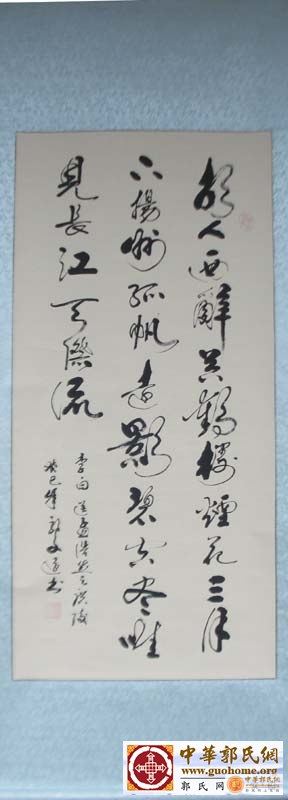 故人西辭黄鶴樓煙花三月
下揚州孤帆遠影碧空尽唯
見長江天際流
李白送孟浩然之廣陵
癸巳年郭文书
中華郭氏網
www.guohome.org
郭氏网
中華郭氏網